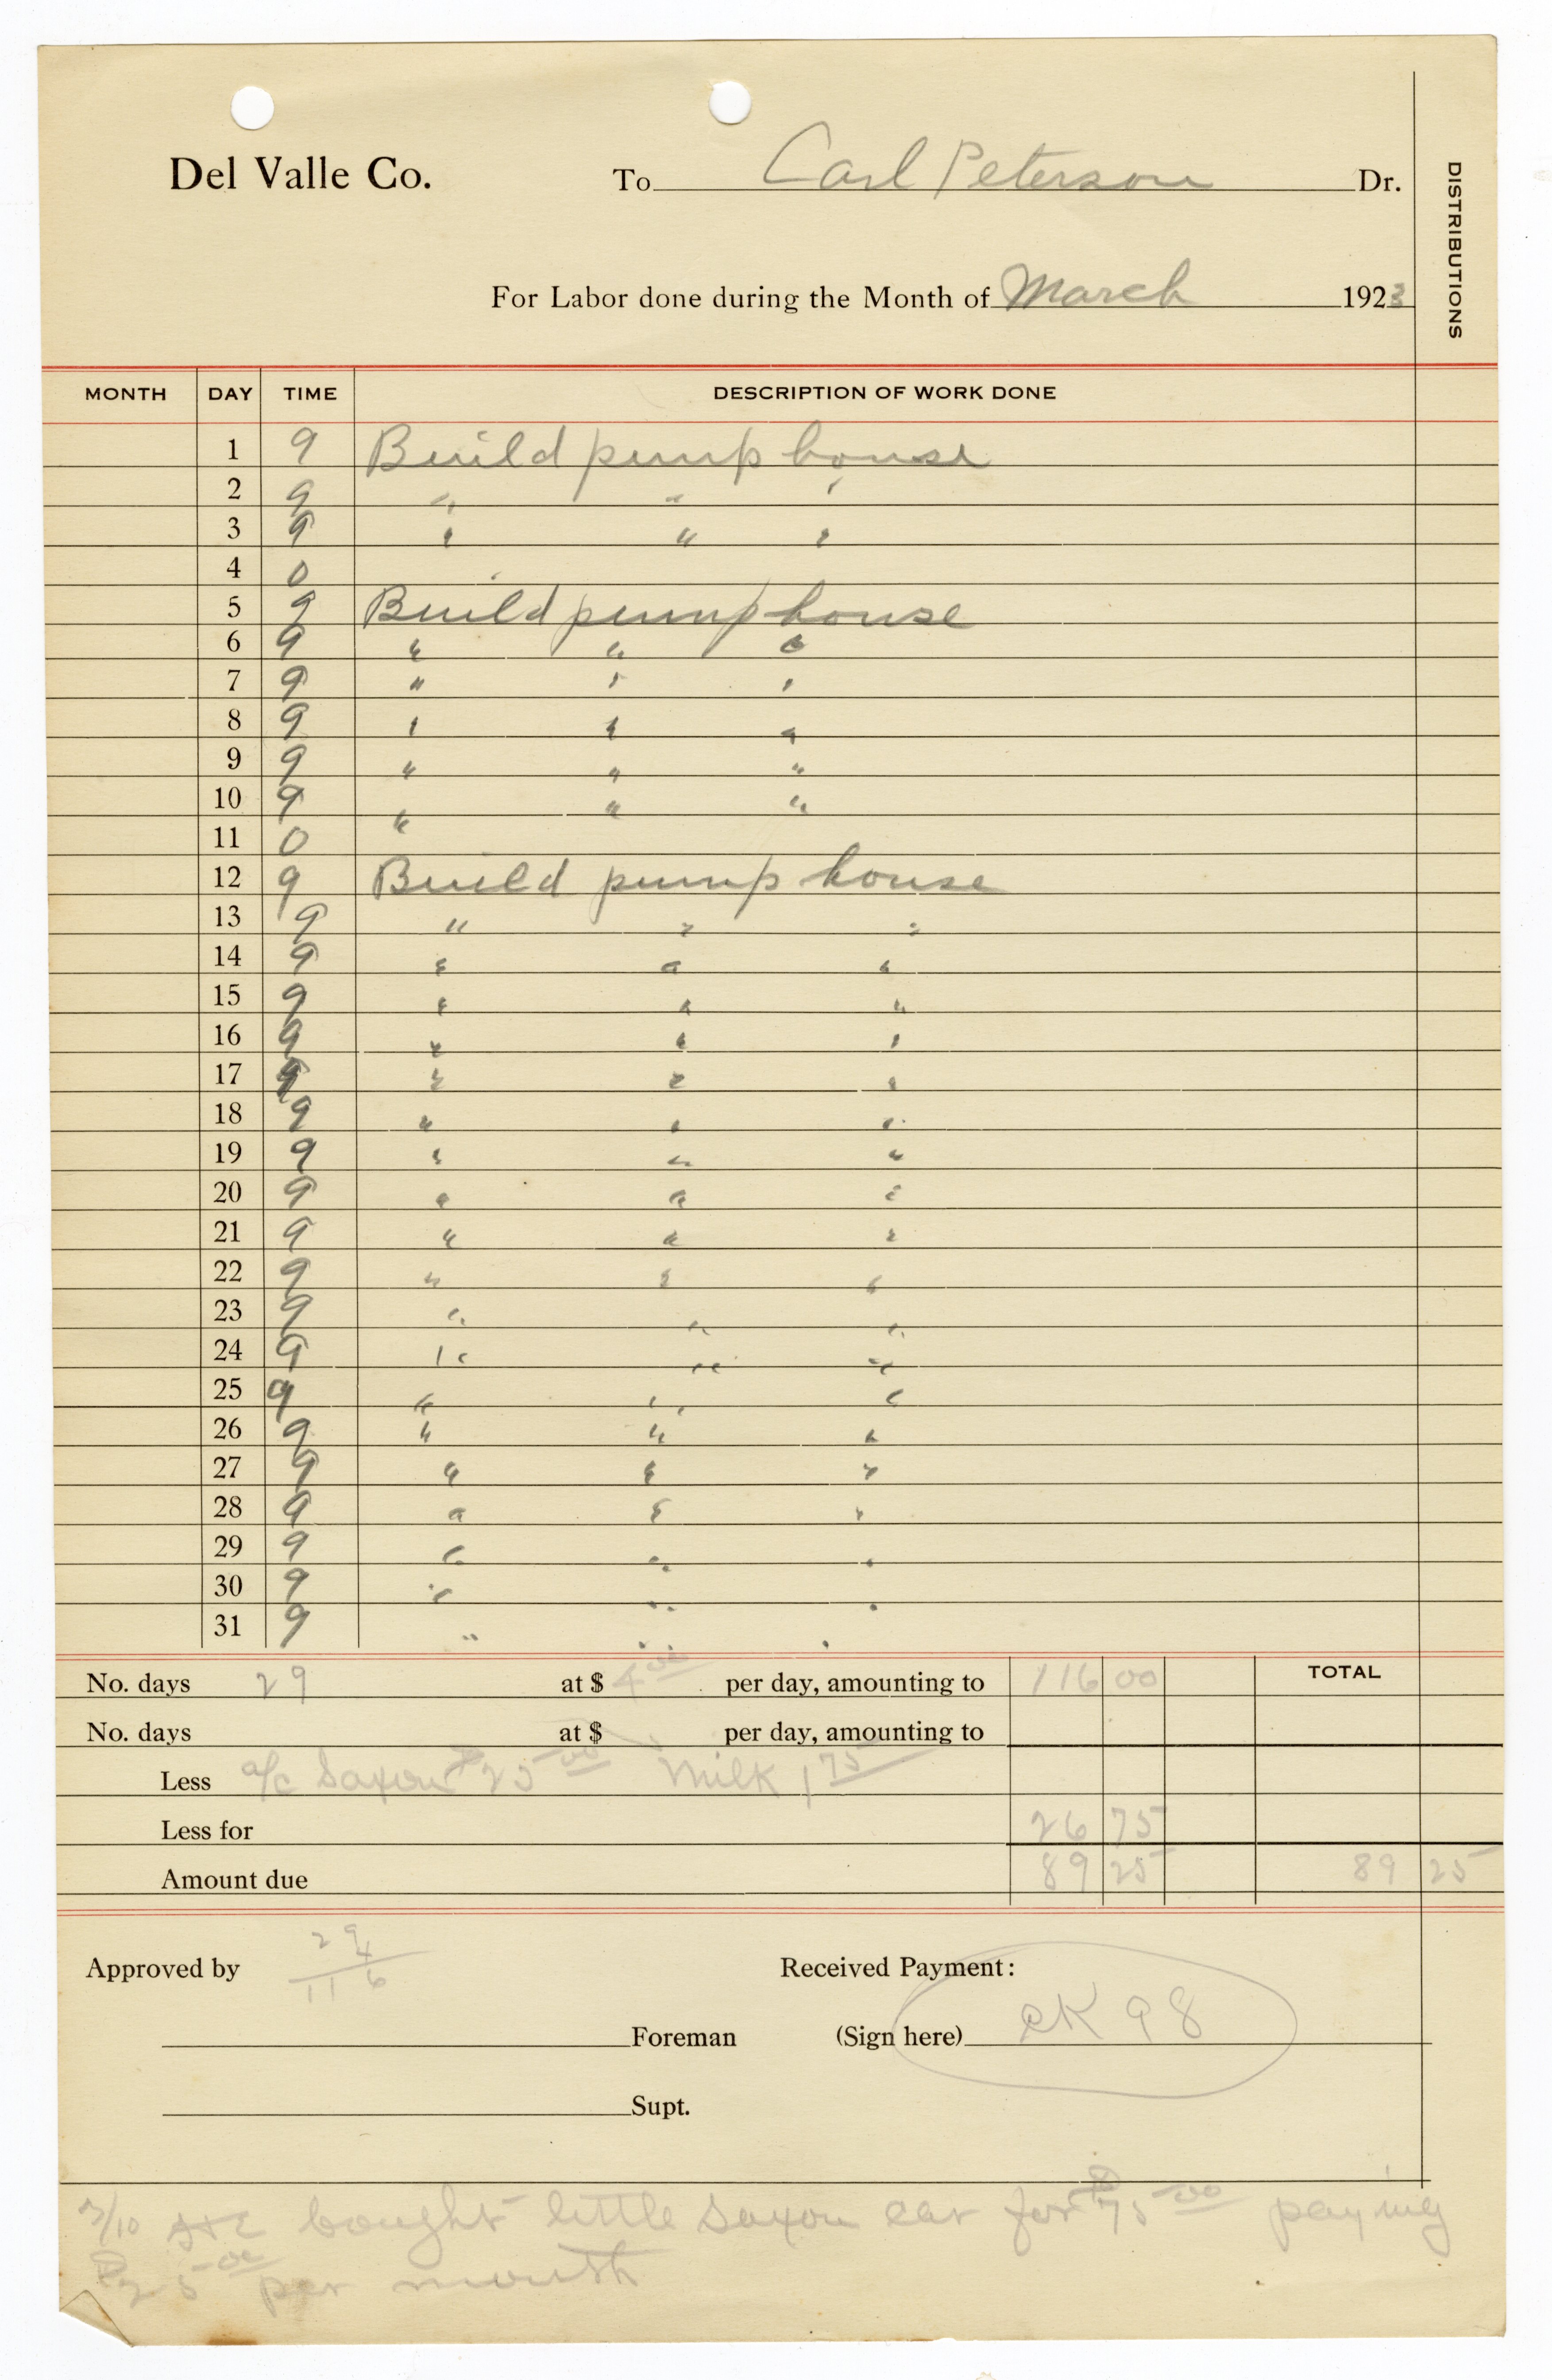 Del Valle Co. To Carl Peterson Dr.
DISTRIBUTIONS
For Labor done during the Month of March 1923
MONTH DAY TIME DESCRIPTION OF WORK DONE
1 9 Build pump house
2 9 " " "
3 9 " " "
4 0
5 9 Build pump house
6 9 " " "
7 9 " " "
8 9 " " "
9 9 " " "
10 9 " " "
11 0
12 9 Build pump house
13 9 " " "
14 9 " " "
15 9 " " "
16 9 " " "
17 9 " " "
18 9 " " "
19 9 " " "
20 9 " " "
21 9 " " "
22 9 " " "
23 9 " " "
24 9 " " "
25 9 " " "
26 9 " " "
27 9 " " "
28 9 " " "
29 9 " " "
30 9 " " "
31 9 " " "
No. days 29 at $ 4 00 per day, amounting to 116 00 TOTAL
No. days at $ per day, amounting to
Less a/c Saxon $25 00 Milk 1 75
Less for 26 75
Amount due 89 25 89 25
29
Approved by 4 Received Payment:
116
Foreman (Sign here) CK 98
Supt.
3/10 bought little Saxon car for $75 00 paying
$25 00 per month